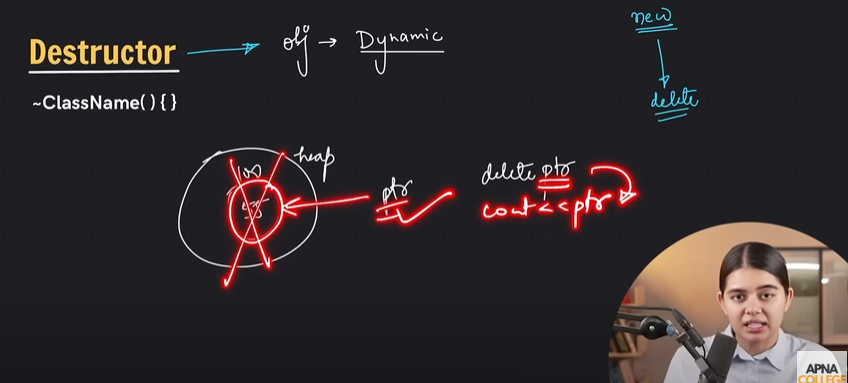 new
Destructor → obj → Dynamic
~ClassName(){}
delete
heap
100
ptr
delete ptr
cout<<ptr
APNA
COLLEGE